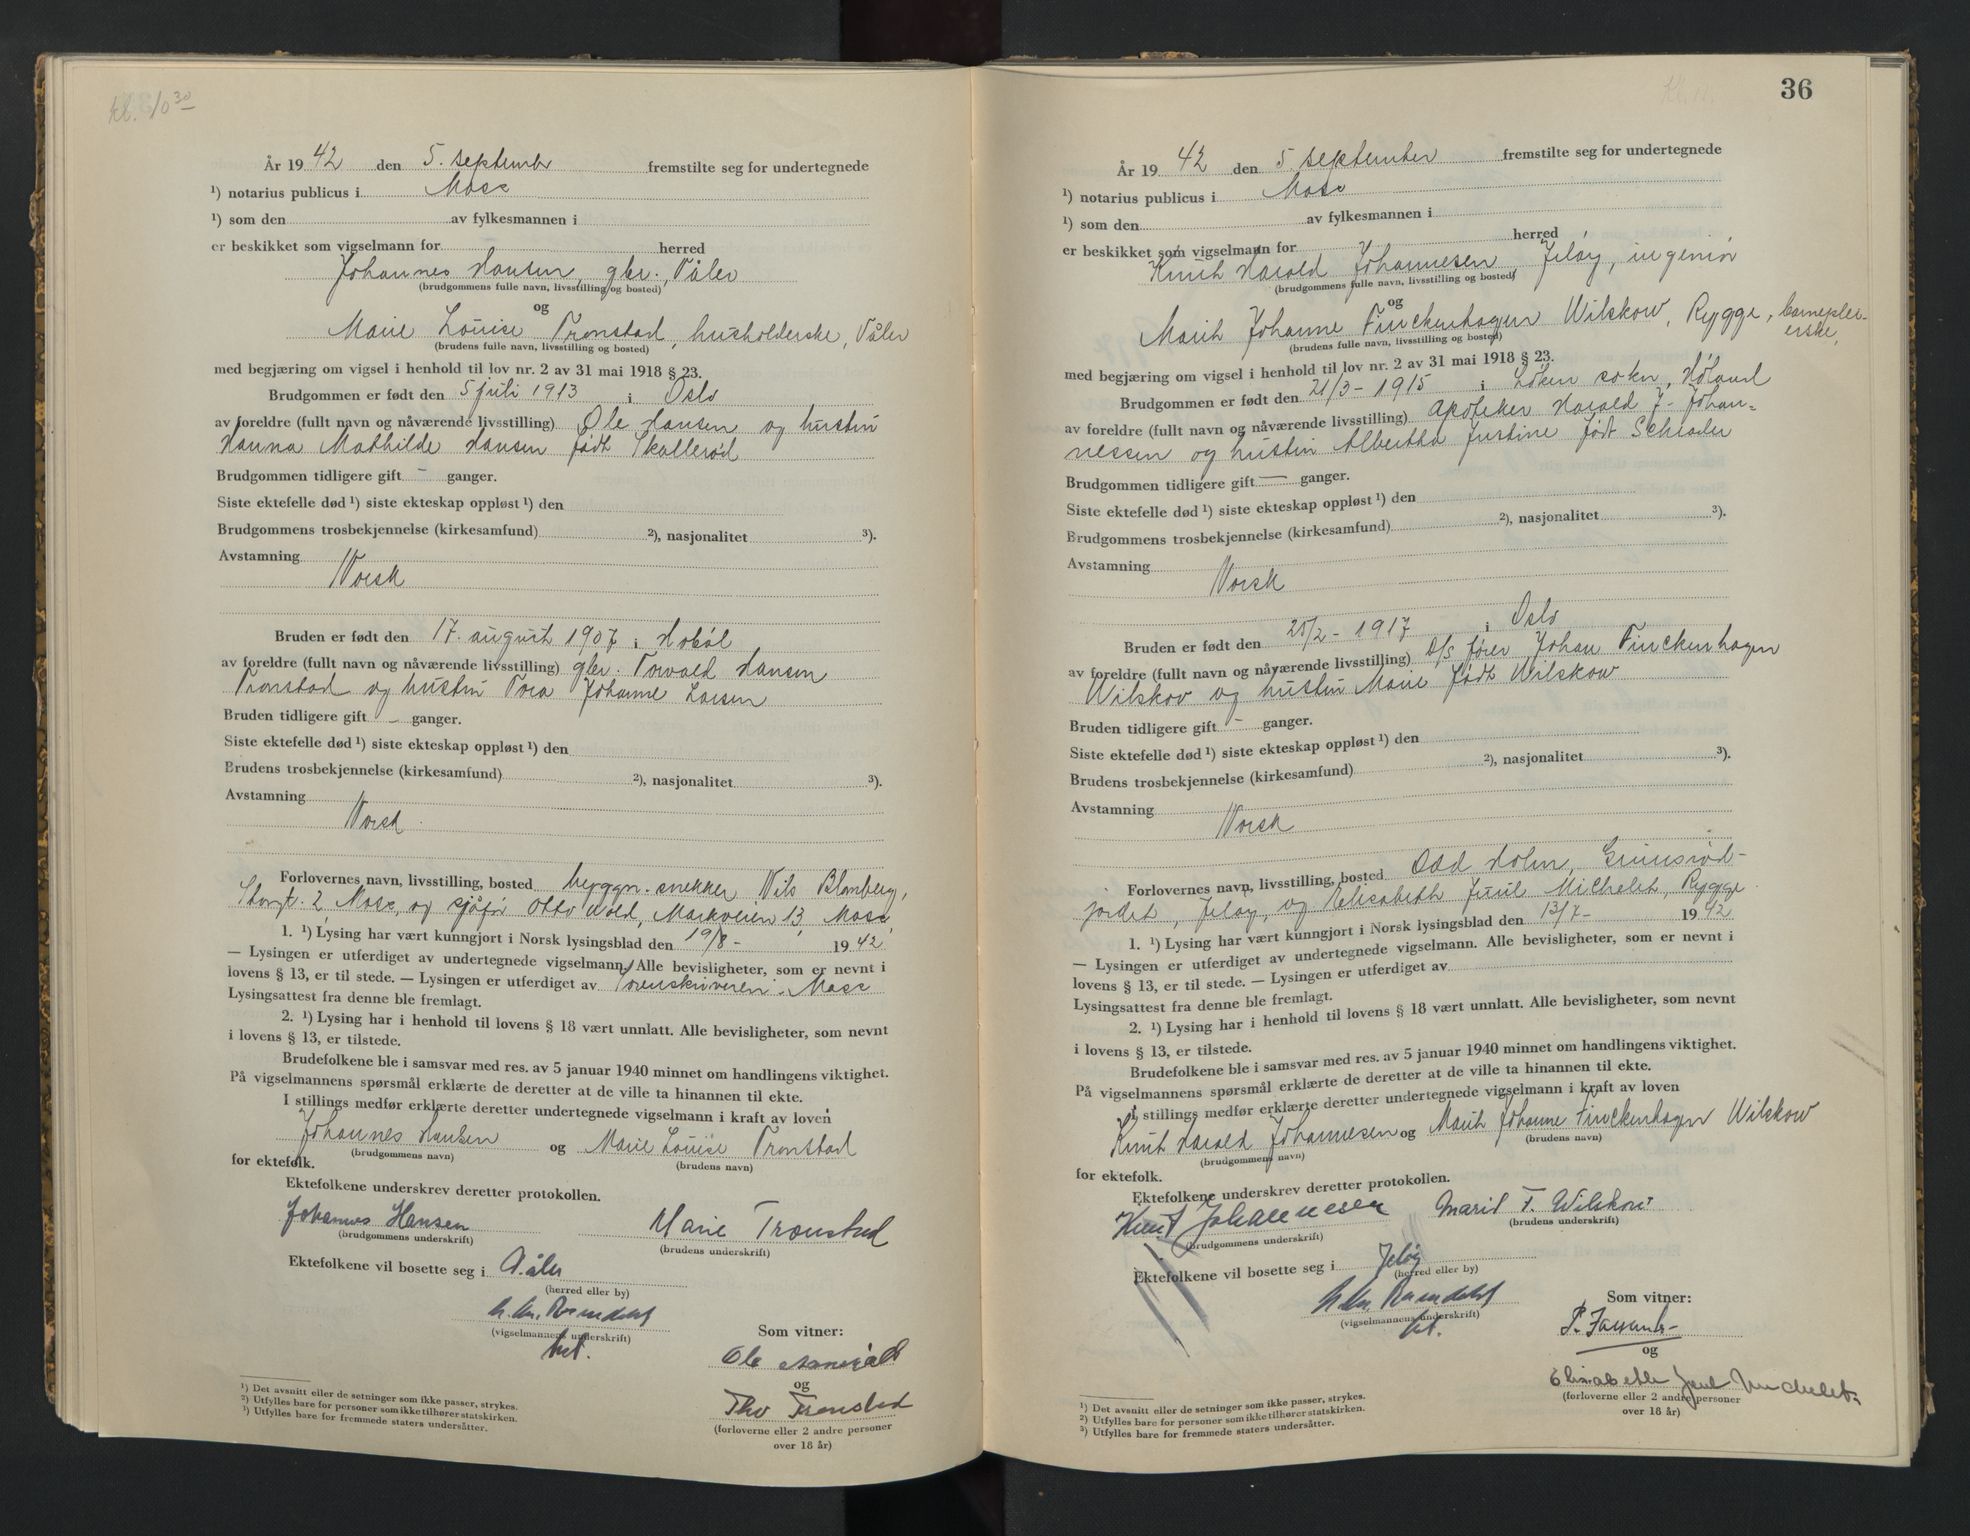 kl. 10 30
År 19 42 den 5. september fremstilte seg for undertegnede
¹) notarius publicus i Moss
¹) som den av fylkesmannen i
er beskikket som vigselmann for herred
Johannes Hansen, gbr., Våler
(brudgommens fulle navn, livsstilling og bosted)
og
Marie Louise Tronstad, husholderske, Våler
(brudens fulle navn, livsstilling og bosted)
med begjæring om vigsel i henhold til lov nr. 2 av 31 mai 1918 § 23.
Brudgommen er født den 5 juli 1913 i Oslo
av foreldre (fullt navn og nåværende livsstilling) Ole Hansen og hustru
Hanna Mathilde Hansen født Skallerød
Brudgommen tidligere gift - ganger.
Siste ektefelle død ¹) siste ekteskap oppløst ¹) den
Brudgommens trosbekjennelse (kirkesamfund) ²), nasjonalitet ³).
Avstamning
Norsk
Bruden er født den 17. august 1907 i Hobøl
av foreldre (fullt navn og nåværende livsstilling) gbr. Torvald Hansen
Tronstad og hustru Tora Johanne Larsen
Bruden tidligere gift - ganger.
Siste ektefelle død ¹) siste ekteskap oppløst ¹) den
Brudens trosbekjennelse (kirkesamfund) ²), nasjonalitet ³).
Avstamning
Norsk.
Forlovernes navn, livsstilling, bosted byggn. snekker Nils Blomberg,
Storgt. 2, Moss, og sjåfør Otto Wold, Markveien 13, Moss,
1. ¹) Lysing har vært kunngjort i Norsk lysingsblad den 19/8 - 19 42
— Lysingen er utferdiget av undertegnede vigselmann. Alle bevisligheter, som er nevnt i
lovens § 13, er til stede. — Lysingen er utferdiget av Sorenskriveren i Moss
Lysingsattest fra denne ble fremlagt.
2. ¹) Lysing har i henhold til lovens § 18 vært unnlatt. Alle bevisligheter, som nevnt
i lovens § 13, er tilstede.
Brudefolkene ble i samsvar med res. av 5 januar 1940 minnet om handlingens viktighet.
På vigselmannens spørsmål erklærte de deretter at de ville ta hinannen til ekte.
I stillings medfør erklærte deretter undertegnede vigselmann i kraft av loven
Johannes Hansen og Marie Louise Tronstad
(brudgommens navn) (brudens navn)
for ektefolk.
Ektefolkene underskrev deretter protokollen.
Johannes Hansen Marie Tronstad
(brudgommens underskrift) (brudens underskrift)
Ektefolkene vil bosette seg i Våler
(herred eller by)
(vigselmannens underskrift)
Som vitner:
Ole
og
Tho Tronstad
(forloverne eller 2 andre personer
over 18 år)
¹) Det avsnitt eller de setninger som ikke passer, strykes.
²) Utfylles bare for personer som ikke tilhører statskirken.
³) Utfylles bare for fremmede staters undersåtter.
kl. 11.
36
År 19 42 den 5 september fremstilte seg for undertegnede
¹) notarius publicus i Moss
¹) som den av fylkesmannen i
er beskikket som vigselmann for herred
Knut Harald Johannesen, Jeløy, ingeniør
(brudgommens fulle navn, livsstilling og bosted)
og
Marit Johanne Finckenhagen Wilskow, Rygge, barneplei-
erske,
(brudens fulle navn, livsstilling og bosted)
med begjæring om vigsel i henhold til lov nr. 2 av 31 mai 1918 § 23.
Brudgommen er født den 21/3 - 1915 i Løken sokn, Høland
av foreldre (fullt navn og nåværende livsstilling) Apoteker Harald J. Johan-
nessen og hustru Albertha Justine født Schrøder
Brudgommen tidligere gift — ganger.
Siste ektefelle død ¹) siste ekteskap oppløst ¹) den
Brudgommens trosbekjennelse (kirkesamfund) ²), nasjonalitet ³).
Avstamning
Norsk
Bruden er født den 25/2 - 1917 i Oslo
av foreldre (fullt navn og nåværende livsstilling) D/S fører Johan Finckenhagen
Wilskov og hustru Marie født Wilskow
Bruden tidligere gift - ganger.
Siste ektefelle død ¹) siste ekteskap oppløst ¹) den
Brudens trosbekjennelse (kirkesamfund) ²), nasjonalitet ³).
Avstamning
Norsk
Forlovernes navn, livsstilling, bosted Odd Holm, Grimsrød-
jordet, Jeløy, og Elisabeth Juul Michelet, Rygge
1. ¹) Lysing har vært kunngjort i Norsk lysingsblad den 13/7 - 19 42
— Lysingen er utferdiget av undertegnede vigselmann. Alle bevisligheter, som er nevnt i
lovens § 13, er til stede. — Lysingen er utferdiget av
Lysingsattest fra denne ble fremlagt.
2. ¹) Lysing har i henhold til lovens § 18 vært unnlatt. Alle bevisligheter, som nevnt
i lovens § 13, er tilstede.
Brudefolkene ble i samsvar med res. av 5 januar 1940 minnet om handlingens viktighet.
På vigselmannens spørsmål erklærte de deretter at de ville ta hinannen til ekte.
I stillings medfør erklærte deretter undertegnede vigselmann i kraft av loven
Knut Harald Johannesen og Marit Johanne Finckenhagen Wilskow
(brudgommens navn) (brudens navn)
for ektefolk.
Ektefolkene underskrev deretter protokollen.
Knut Johannesen Marit F. Wilskow
(brudgommens underskrift) (brudens underskrift)
Ektefolkene vil bosette seg i Jeløy
(herred eller by)
(vigselmannens underskrift)
Som vitner:
og
Elisabeth Juul Michelet
(forloverne eller 2 andre personer
over 18 år)
¹) Det avsnitt eller de setninger som ikke passer, strykes.
²) Utfylles bare for personer som ikke tilhører statskirken.
³) Utfylles bare for fremmede staters undersåtter.